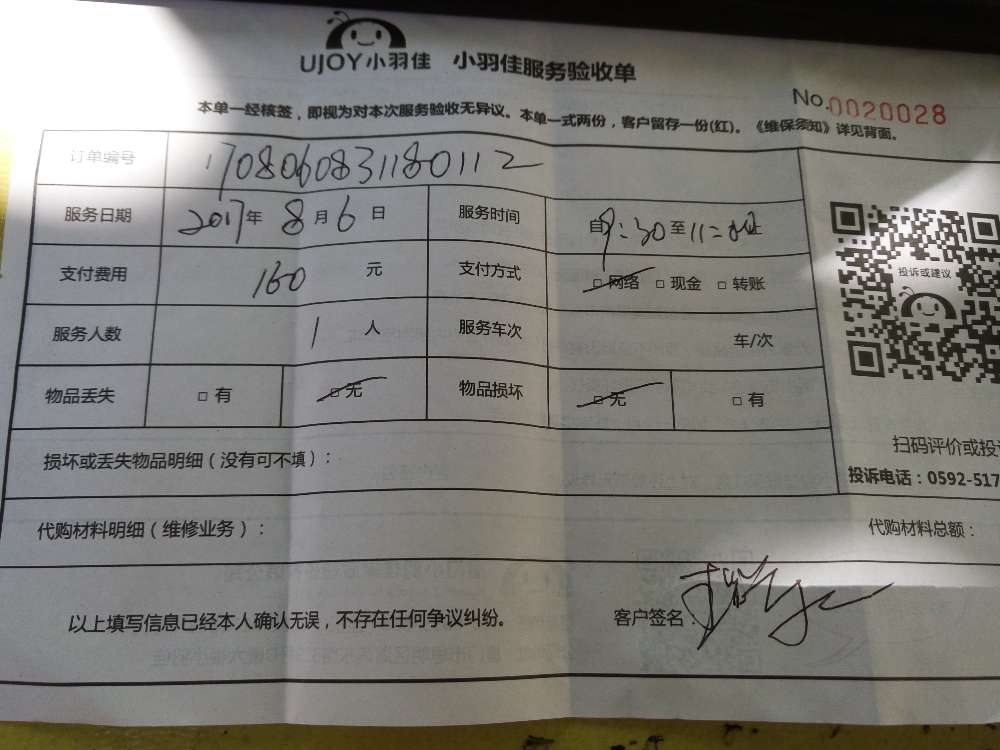 UJOY小羽佳 小羽佳服务验收单
No.0020028
本单一经核签，即视为对本次服务验收无异议。本单一式两份，客户留存一份(红)。《维保须知》详见背面。
订单编号 1708060831180112
服务日期 2017年 8月 6日 服务时间 自9:30至11:
支付费用 160 元 支付方式 □网络 □现金 □转账
服务人数 1 人 服务车次 车/次
物品丢失 □有 □无 物品损坏 □无 □有
投诉或建议
损坏或丢失物品明细（没有可不填）：
扫码评价或投
投诉电话：0592-517
代购材料明细（维修业务）： 代购材料总额：
以上填写信息已经本人确认无误，不存在任何争议纠纷。 客户签名：